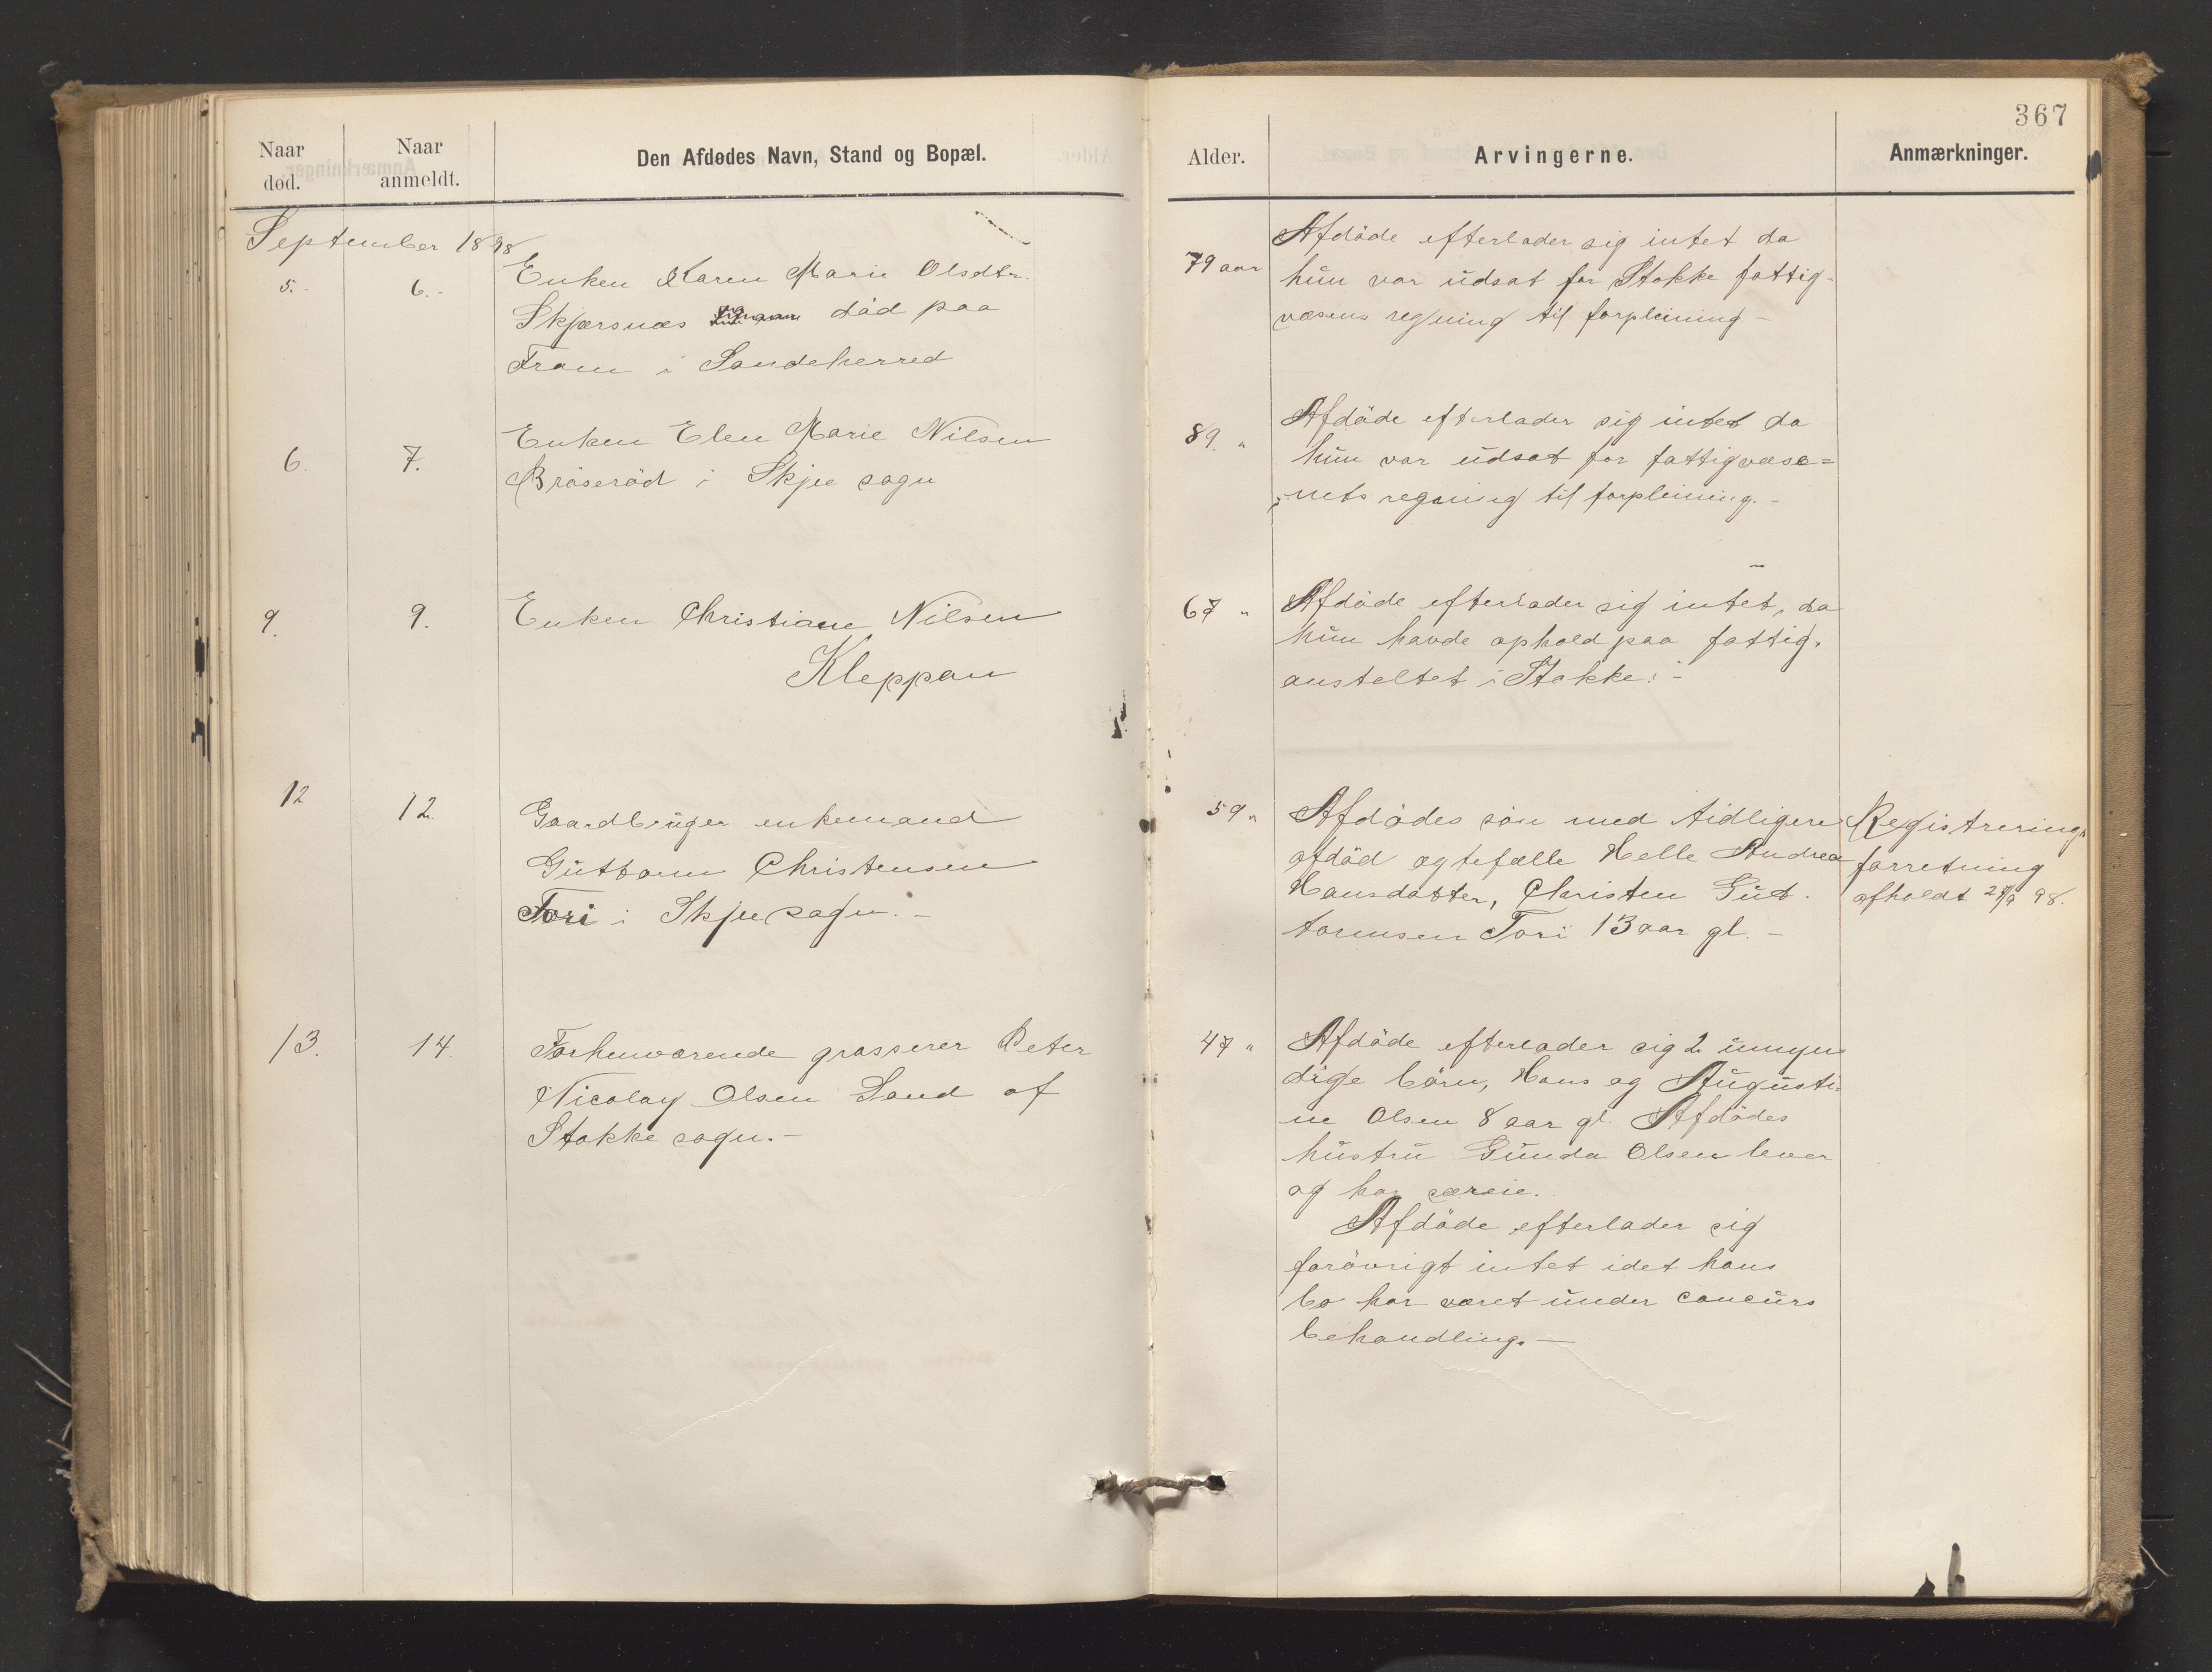 367
Naar død.
Naar anmeldt.
Den Afdødes Navn, Stand og Bopæl.
Alder.
Arvingerne.
Anmærkninger.
September 1898
5.-
6.-
Enken Karen Marie Olsdtr.
Skjærsnæs död paa
Fram i Sandeherred
79 aar
Afdöde efterlader sig intet da
hun var udsat for Stokke fattig-
væsens regning til forpleining.-
6.
7.
Enken Elen Marie Nilsen
Bröseröd i Skjee sogn
89. "
Afdöde efterlader sig intet da
hun var udsat for fattigvæse=
nets regning til forpleining.-
9.
9.
Enken Christiane Nilsen
Kleppan
67 "
Afdöde efterlader sig intet, da
hun havde ophold paa fattig.
anstaltet i Stokke.-
12
12.
Gaardbruger enkemand
Guttorm Christensen
Tori i Skjee sogn.-
59 "
Afdödes sön med tidligere
afdöd ægtefælle Helle Andrea
Hansdatter, Christen Gut.
tormsen Tori 13 aar gl.-
Registrerings
forretning
afholdt 27/9 98.
13.
14.
Forhenværende grosserer Peter
Nicolay Olsen Sand af
Stokke sogn.-
47 "
Afdöde efterlader sig 2 umyn
dige börn, Hans og Augusti=
ne Olsen 8 aar gl. Afdödes
hustru Gunda Olsen lever
og har særeie.
Afdöde efterlader sig
forövrigt intet idet hans
bo har været under concurs
behandling.-